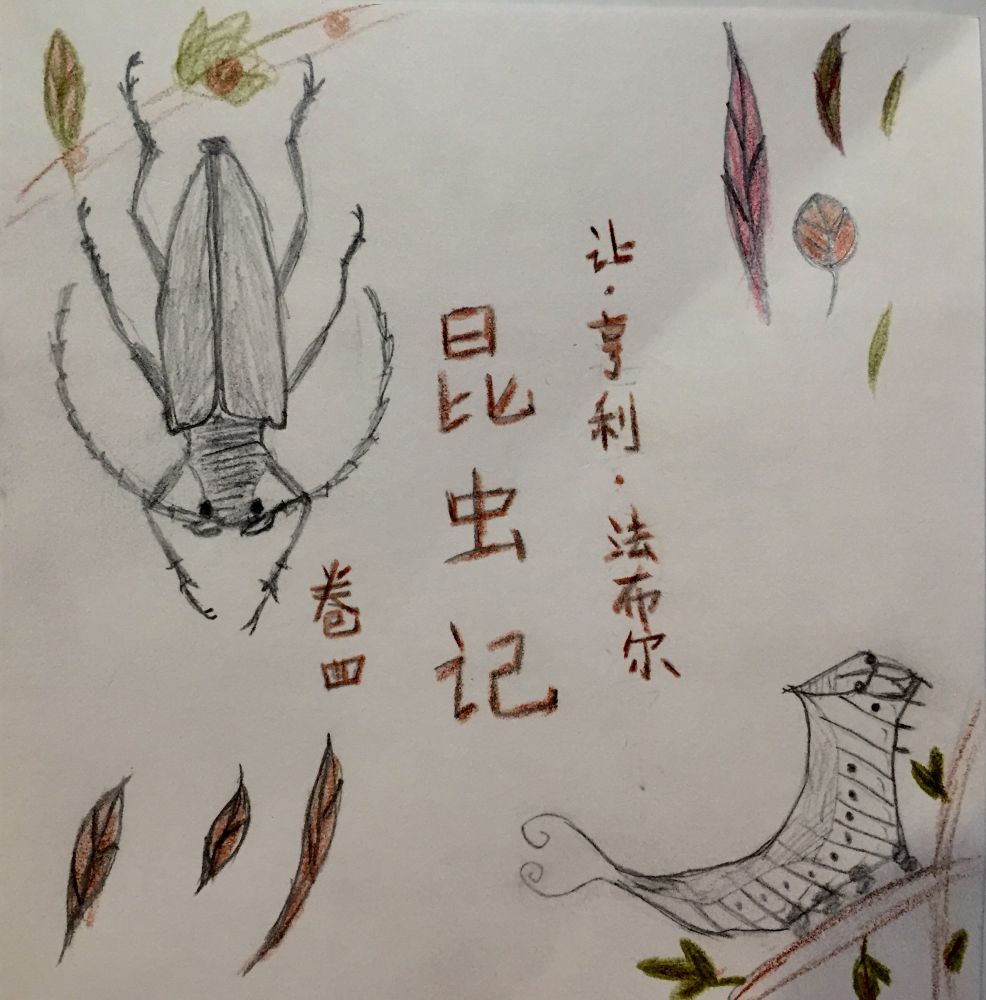 让·亨利·法布尔
昆虫记
卷四